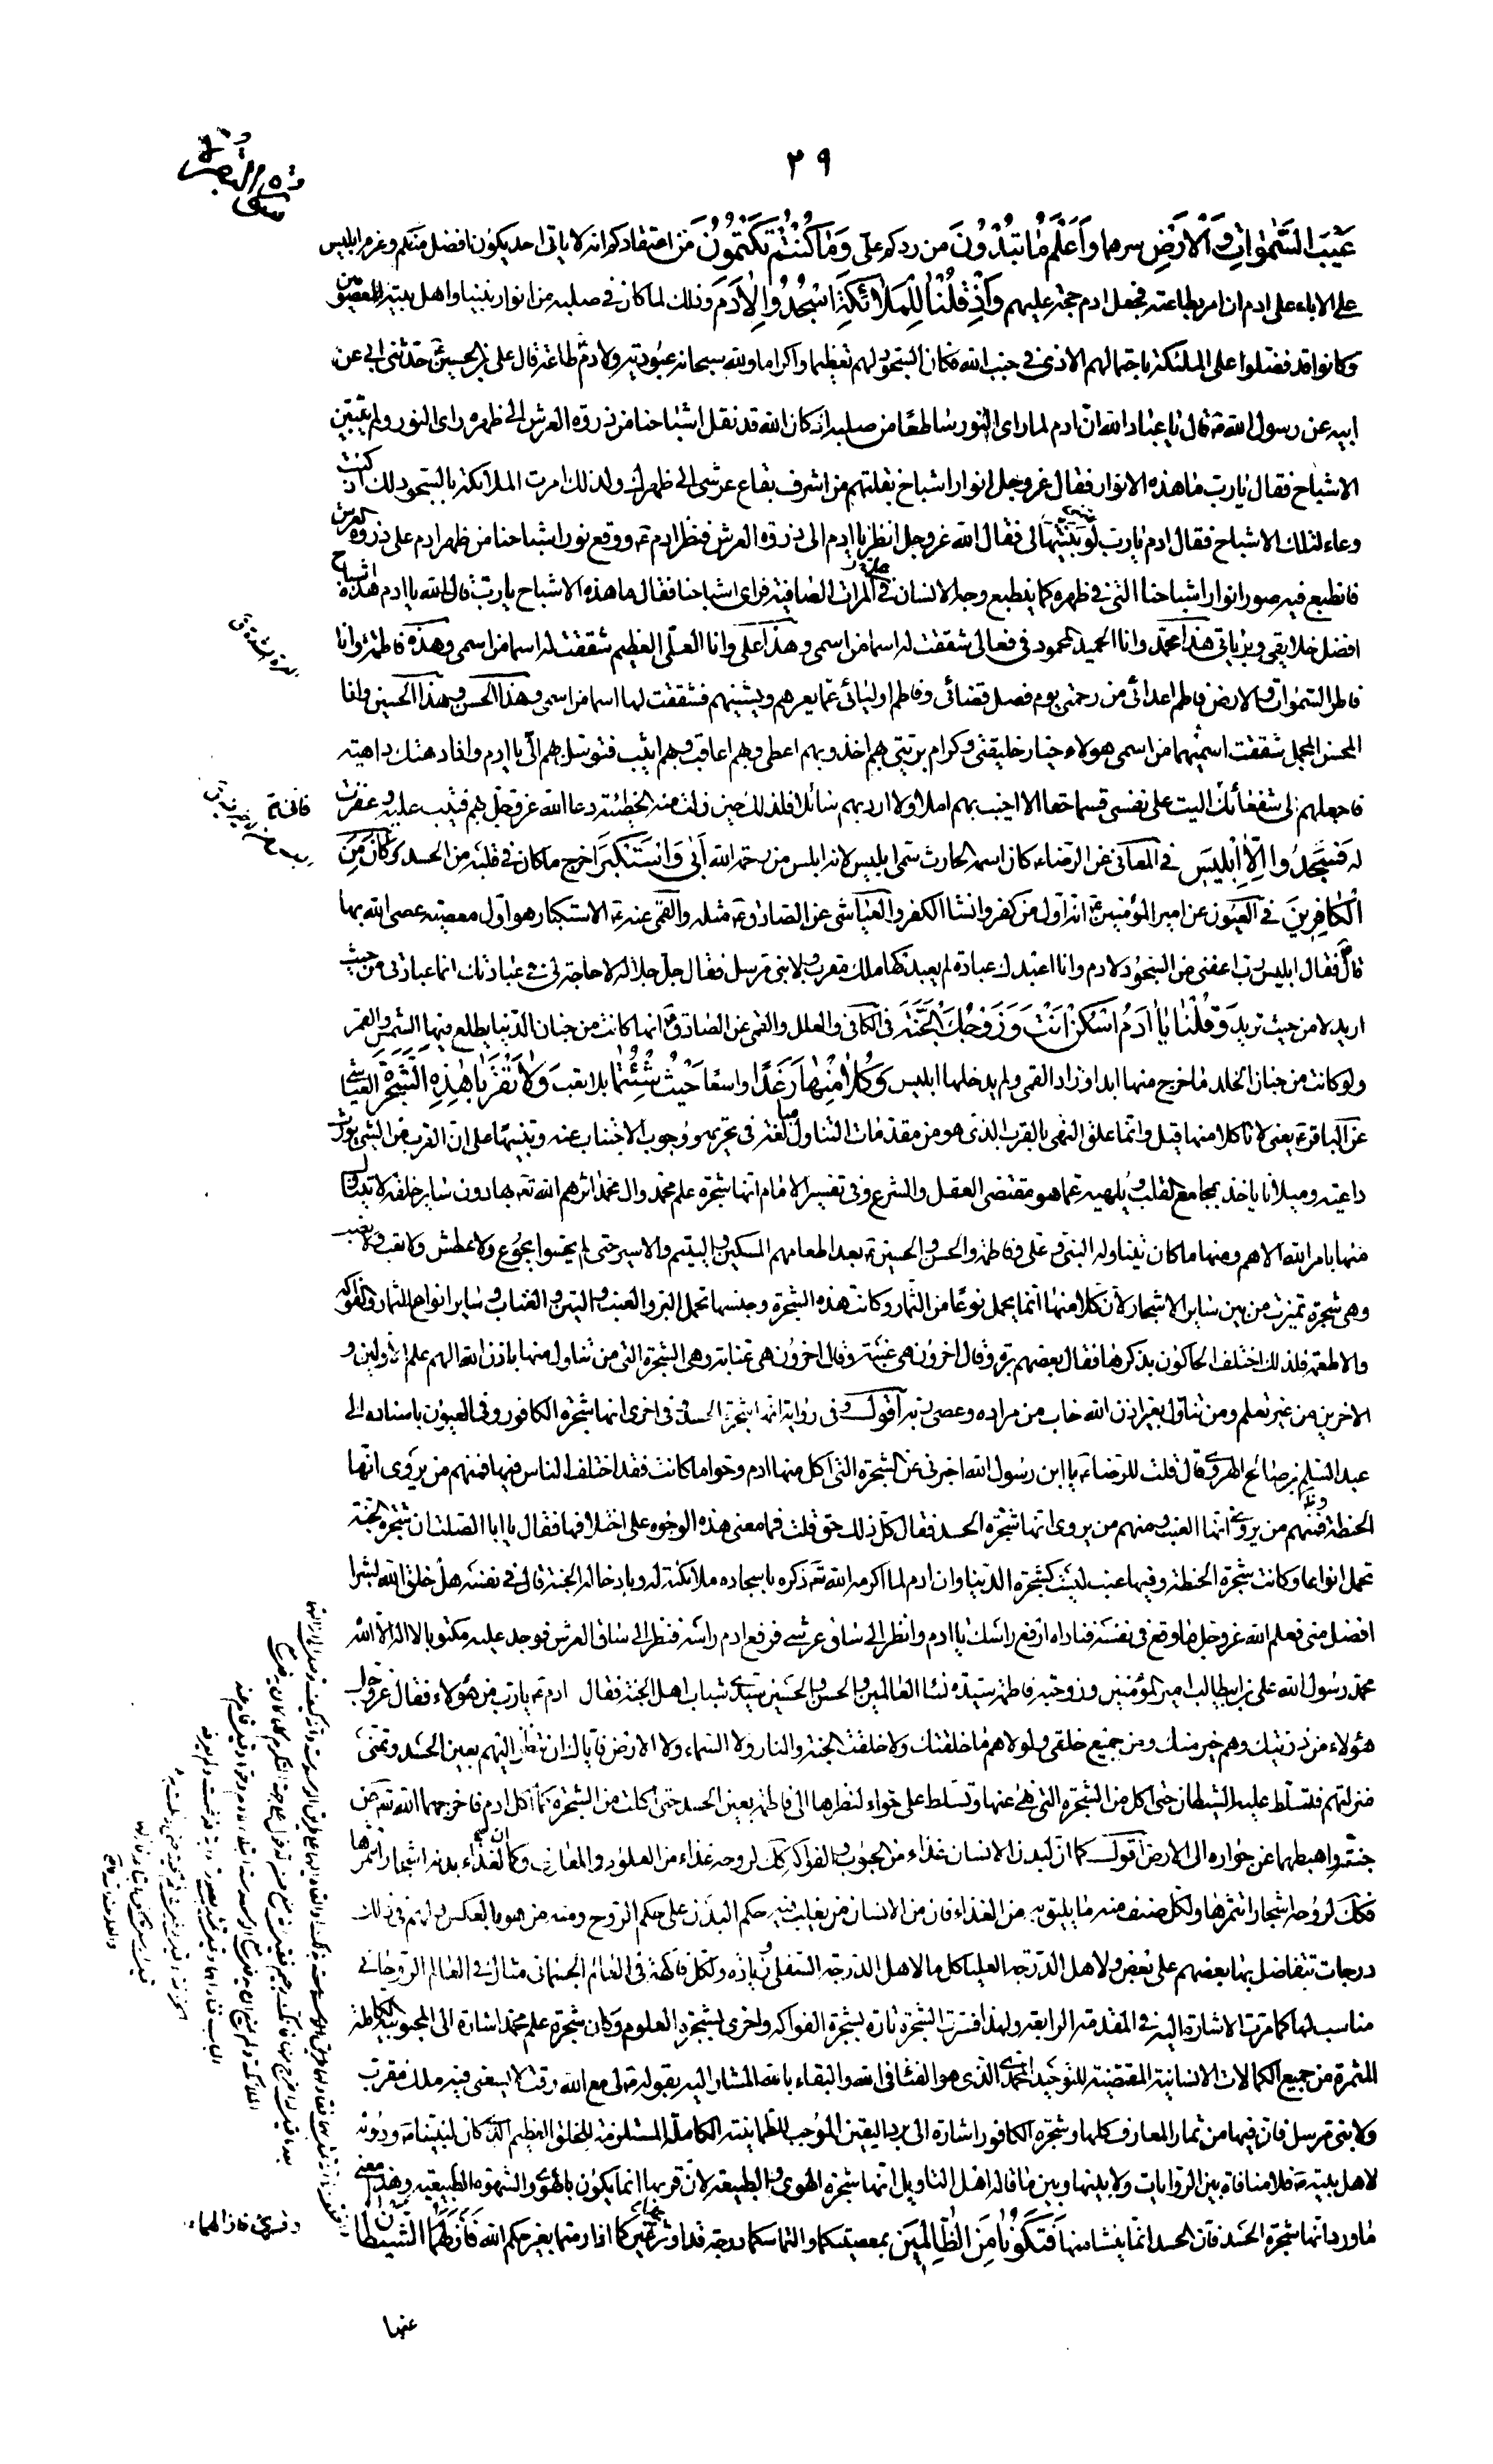 ٢٩
غَيْبَ السَّمٰوَاتِ وَالْاَرْضِ سرهما وَاَعْلَمُ مٰا تُبْدُونَ من ردكم على وَمٰا كُنْتُمْ تَكْتُمُونَ من اعتقادكم انه لا ياتى احد يكون افضل منكم وعزم ابليس
على الاباء على ادم ان امر بطاعته فجعل ادم حجة عليهم وَاِذْ قُلْنٰا لِلْمَلٰائِكَةِ اسْجُدُوا لِاٰدَمَ وذلك لما كان فى صلبه من انوار نبينا واهل بيته المعصومين
وكانوا قد فضلوا على الملئكة باحتمالهم الاذى فى جنب الله فكان السجود لهم تعظيما واكراما ولله سبحانه عبودية ولادم طاعة قال على بن الحسين حدثنى ابى عن
ابيه عن رسول الله ص قال يا عباد الله ان ادم لما راى النور ساطعا من صلبه اذ كان الله قد نقل اشباحنا من ذروة العرش الى ظهره راى النور ولم يتبين
الاشباح فقال يا رب ما هذه الانوار فقال عز وجل انوار اشباح نقلتهم من اشرف بقاع عرشى الى ظهرك ولذلك امرت الملائكة بالسجود لك اذ كنت
وعاء لتلك الاشباح فقال ادم يا رب لو بينتها لى فقال الله عز وجل انظر يا ادم الى ذروة العرش فنظر ادم ع ووقع نور اشباحنا من ظهر ادم على ذروة العرش
فانطبع فيه صور انوار اشباحنا التى فى ظهره كما ينطبع وجه الانسان فى المرات الصافية فراى اشباحنا فقال ما هذه الاشباح يا رب قال الله يا ادم هذه اشباح
افضل خلايقى وبرياتى هذا محمد وانا الحميد المحمود فى فعالى شققت له اسما من اسمى وهذا على وانا العلى العظيم شققت له اسما من اسمى وهذه فاطمة وانا
فاطر السموات والارض فاطم اعدائى من رحمتى يوم فصل قضائى وفاطم اوليائى عما يعرهم ويشينهم فشققت لها اسما من اسمى وهذا الحسن وهذا الحسين وانا
المحسن المجمل شققت اسميهما من اسمى هؤلاء خيار خليقتى وكرام بريتى بهم اخذ وبهم اعطى وبهم اعاقب وبهم اثيب فتوسل بهم الى يا ادم واذا دهتك داهية
فاجعلهم الى شفعائك اليت على نفسى قسما حقا الا اخيب بهم املا ولا ارد بهم سائلا فلذلك حين زلت منه الخطيئة دعا الله عز وجل بهم فتيب عليه وغفرت
له فَسَجَدُوا اِلّٰا اِبْلِيسَ فى المعانى عن الرضاء كان اسمه الحارث سمى ابليس لانه ابلس من رحمة الله اَبىٰ وَاسْتَكْبَرَ اخرج ما كان فى قلبه من الحسد وَكٰانَ مِنَ
الْكٰافِرِينَ فى العيون عن امير المؤمنين انه اول من كفر وانشا الكفر والعياشى عن الصادق ع مثله والقمى عنه ع الاستكبار هو اول معصية عصى الله بها
قال فقال ابليس رب اعفنى من السجود لادم وانا اعبدك عبادة لم يعبدكها ملك مقرب ولا نبى مرسل فقال جل جلاله لا حاجة لى فى عبادتك انما عبادتى من حيث
اريد لا من حيث تريد وَقُلْنٰا يٰا اٰدَمُ اسْكُنْ اَنْتَ وَزَوْجُكَ الْجَنَّةَ فى الكافى والعلل والقمى عن الصادق انها كانت من جنان الدنيا يطلع فيها الشمس والقمر
ولو كانت من جنان الخلد ما اخرج منها ابدا وزاد القمى ولم يدخلها ابليس وَكُلٰا مِنْهٰا رَغَدًا واسعا حَيْثُ شِئْتُمٰا بلا تعب وَلٰا تَقْرَبٰا هٰذِهِ الشَّجَرَةَ العياشى
عن الباقر ع يعنى لا تاكلا منها قيل وانما علق النهى بالقرب الذى هو من مقدمات التناول مبالغة فى تحريمه ووجوب الاجتناب عنه وتنبيها على ان القرب من الشئ يورث
داعية وميلا ما ياخذ بمجامع القلب ويلهيه عما هو مقتضى العقل والشرع وفى تفسير الامام انها شجرة علم محمد وال محمد اثرهم الله تع بها دون ساير خلقه لا يتناول
منها بامر الله الا هم ومنها ما كان يتناوله النبى ص وعلى وفاطمة والحسن والحسين ع بعد اطعامهم المسكين واليتيم والاسير حتى لم يحسوا بجوع ولا عطش ولا تعب ولا نصب
وهى شجرة تميزت من بين ساير الاشجار لان كلا منها انما يحمل نوعا من الثمار وكانت هذه الشجرة وجنسها تحمل البر والعنب والتين والعناب وساير انواع الثمار والفواكه
والاطعمة فلذلك اختلف الحاكون بذكرها فقال بعضهم برة وقال اخرون هى عنبة وقال اخرون هى عنابة وهى الشجرة التى من تناول منها باذن الله الهم علم الاولين و
الاخرين من غير تعلم ومن تناول بغير اذن الله خاب من مراده وعصى ربه اقول وفى رواية انها شجرة الحسد وفى اخرى انها شجرة الكافور وفى العيون باسناده الى
عبد السلم بن صالح الهروى قال قلت للرضاء ع يا ابن رسول الله اخبرنى عن الشجرة التى اكل منها ادم وحوا ما كانت فقد اختلف الناس فيها فمنهم من يروى انها
الحنطة ومنهم من يروى انها العنب ومنهم من يروى انها شجرة الحسد فقال كل ذلك حق قلت فما معنى هذه الوجوه على اختلافها فقال يا ابا الصلت ان شجرة الجنة
تحمل انواعا وكانت شجرة الحنطة وفيها عنب ليست كشجرة الدنيا وان ادم لما اكرمه الله تع ذكره باسجاده ملائكته له وبادخاله الجنة قال فى نفسه هل خلق الله بشرا
افضل منى فعلم الله عز وجل ما وقع فى نفسه فناداه ارفع راسك يا ادم وانظر الى ساق عرشى فرفع ادم راسه فنظر الى ساق العرش فوجد عليه مكتوبا لا اله الا الله
محمد رسول الله على بن ابيطالب امير المؤمنين وزوجته فاطمة سيدة نساء العالمين والحسن والحسين سيدى شباب اهل الجنة فقال ادم ع يا رب من هؤلاء فقال عز وجل
هؤلاء من ذريتك وهم خير منك ومن جميع خلقى ولولاهم ما خلقتك ولا خلقت الجنة والنار ولا السماء ولا الارض فاياك ان تنظر اليهم بعين الحسد وتمنى
منزلتهم فتسلط عليه الشيطان حتى اكل من الشجرة التى نهى عنها وتسلط على حواء لنظرها الى فاطمة بعين الحسد حتى اكلت من الشجرة كما اكل ادم فاخرجهما الله تع عن
جنته واهبطهما عن جواره الى الارض اقول كما ان لبدن الانسان غذاء من الحبوب والفواكه كك لروحه غذاء من العلوم والمعارف وكما ان لغذاء بدنه اشجارا تثمرها
فكك لروحه اشجار تثمرها ولكل صنف منه ما يليق به من الغذاء فان من الانسان من يغلب فيه حكم البدن على حكم الروح ومنه من هو بالعكس ولهم فى ذلك
درجات يتفاضل بها بعضهم على بعض ولاهل الدرجة العليا كل ما لاهل الدرجة السفلى وزيادة ولكل فاكهة فى العالم الجسمانى مثال فى العالم الروحانى
مناسب لها كما مرت الاشارة اليه فى المقدمة الرابعة ولهذا فسرت الشجرة تارة بشجرة الفواكه واخرى بشجرة العلوم وكان شجرة علم محمد اشارة الى المحبوبية الكاملة
المثمرة من جميع الكمالات الانسانية المقتضية للتوحيد المحمدى الذى هو الفناء فى الله والبقاء بالله المشار اليه بقوله ص لى مع الله وقت لا يسعنى فيه ملك مقرب
ولا نبى مرسل فان فيها من ثمار المعارف كلها وشجرة الكافور اشارة الى برد اليقين الموجب للطمانينة الكاملة المستلزمة للخلق العظيم الذى كان لنبينا ص ودونه
لاهل بيته ع فلا منافاة بين الروايات ولا بينها وبين ما قاله اهل التاويل انها شجرة الهوى والطبيعة لان قربها انما يكون بالهوى والشهوة الطبيعية وهذا معنى
ما ورد انها شجرة الحسد فان الحسد انما ينشا منها فَتَكُونٰا مِنَ الظّٰالِمِينَ بمعصيتكما والتماسكما درجة قد اوثر بها غيركما اذا رمتما بغير حكم الله فَاَزَلَّهُمَا الشَّيْطٰانُ
عنها